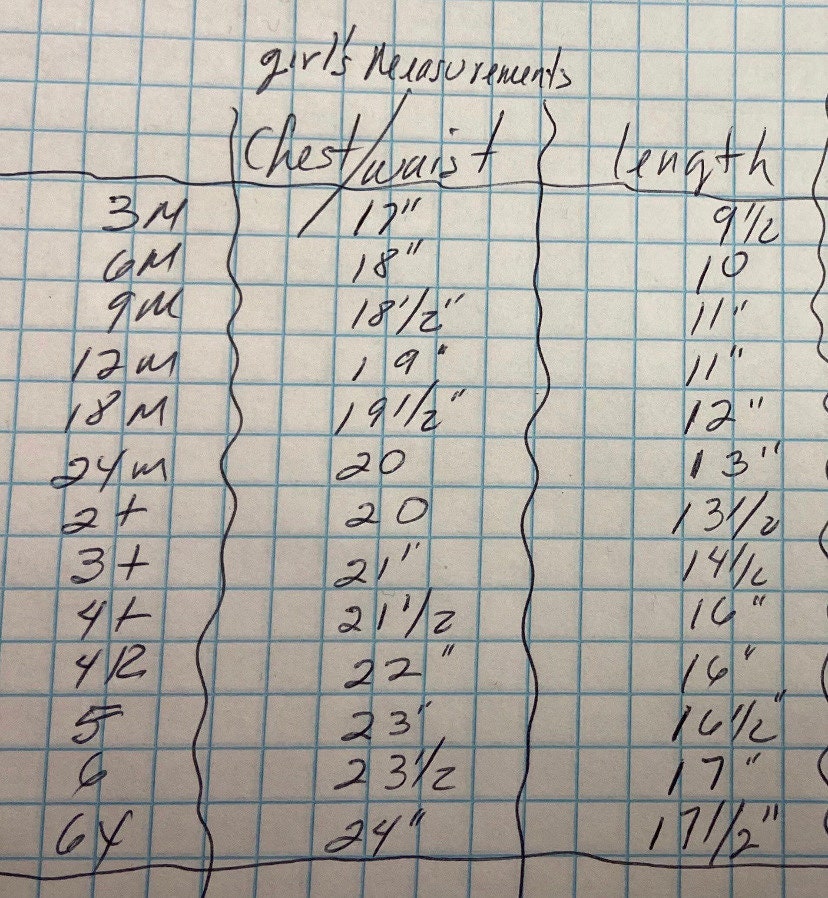 girl's Measurements
Chest/waist length
3M 17" 9 1/2
6M 18" 10
9M 18 1/2" 11"
12m 19" 11"
18M 19 1/2" 12"
24m 20 13"
2t 20 13 1/2
3t 21" 14 1/2
4t 21 1/2 16"
4R 22" 16"
5 23" 16 1/2"
6 23 1/2 17"
6X 24" 17 1/2"